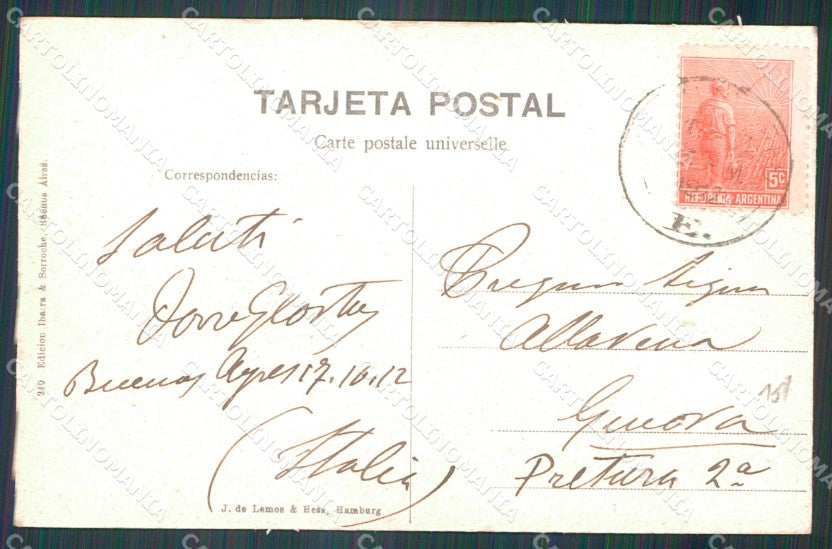 TARJETA POSTAL
Carte postale universelle
Correspondencias:
Saluti
Buenos Ayres 17.10.12
(Italia)
J. de Lemos & Hess, Hamburg
240 Edicion Ibarra & Sorroche, Buenos Aires.
5c
REPUBLICA ARGENTINA
E.
Allavena
Genova
Pretura 2a
15/
CARTOLINOMANIA